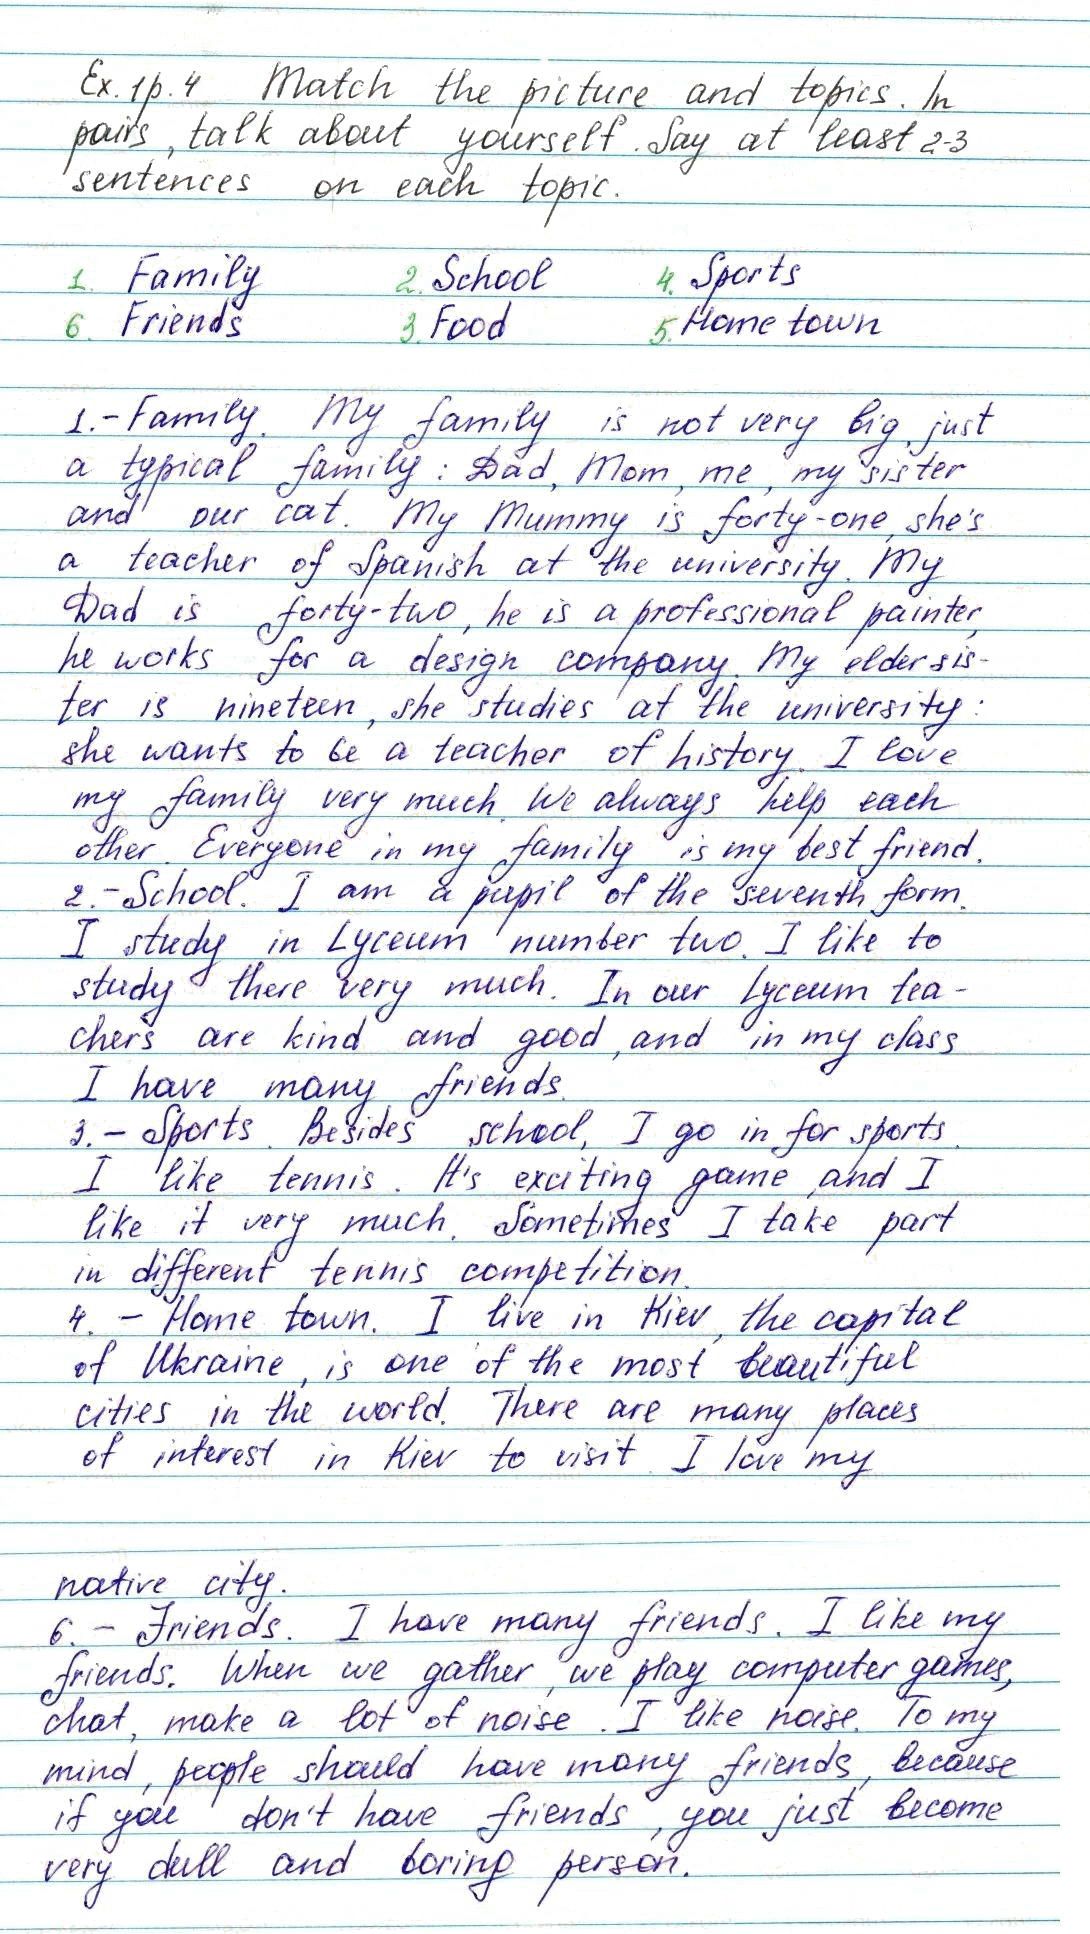 Ex. 1 p. 4 Match the picture and topics. In
pairs, talk about yourself. Say at least 2-3
sentences on each topic.
1. Family 2. School 4. Sports
6. Friends 3. Food 5. Home town
1. - Family. My family is not very big, just
a typical family: Dad, Mom, me, my sister
and our cat. My Mummy is forty-one, she's
a teacher of Spanish at the university. My
Dad is forty-two, he is a professional painter,
he works for a design company. My elder sis-
ter is nineteen, she studies at the university:
she wants to be a teacher of history. I love
my family very much. We always help each
other. Everyone in my family is my best friend.
2. - School. I am a pupil of the seventh form.
I study in Lyceum number two. I like to
study there very much. In our Lyceum tea-
chers are kind and good, and in my class
I have many friends.
3. - Sports. Besides school, I go in for sports.
I like tennis. It's exciting game and I
like it very much. Sometimes I take part
in different tennis competition.
4. - Home town. I live in Kiev, the capital
of Ukraine, is one of the most beautiful
cities in the world. There are many places
of interest in Kiev to visit. I love my
native city.
6. - Friends. I have many friends. I like my
friends. When we gather, we play computer games,
chat, make a lot of noise. I like noise. To my
mind, people should have many friends, because
if you don't have friends, you just become
very dull and boring person.